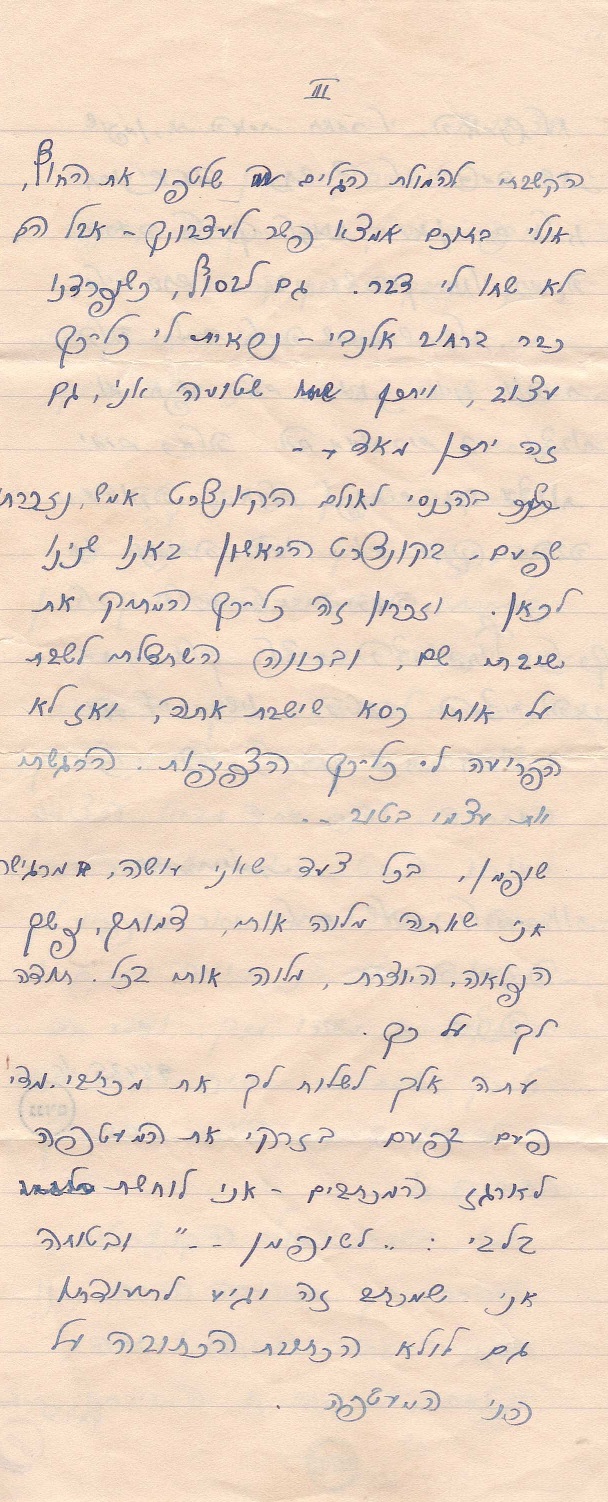 III
הקשבתי להמולת הגלים שלטפו את החוף,
אולי באיזכם אמצא פשר לעצבונך – אבל הם
לא שחו לי דבר. גם לבסוף, כשנפרדנו
כבר ברחוב אלנבי – נשארת לי כל־כך
עצוב, ויתכן שטועה אני, גם
זה יתכן מאד – –
בהכנסי לאולם הקונצרט אמש, נזכרתי
שפעם – בקונצרט הראשון באנו שנינו
לכאן. וזכרון זה כל־כך המתיק את
ישיבתי שם, ובכונה השתדלתי לשבת
על אותו כסא שישבת אתה, ואז לא
הפריעה לי כל־כך הצפיפות. הרגשתי
את עצמי בטוב – –
שופמן, בכל צעד שאני עושה, מרגישה
אני שאתה מלוה אותי, דמותך, נפשך
הנפלאה, היוצרת, מלוה אותי בכל. תודה
לך על כך.
עתה אלך לשלוח לך את מכתבי. מדי
פעם בפעם בזרקי את המעטפה
לארגז המכתבים – אני לוחשת
בלבי: „לשופמן – –" ובטוחה
אני שמכתב זה יגיע לתעודתו
גם לולא הכתובת הכתובה על
פני המעטפה.